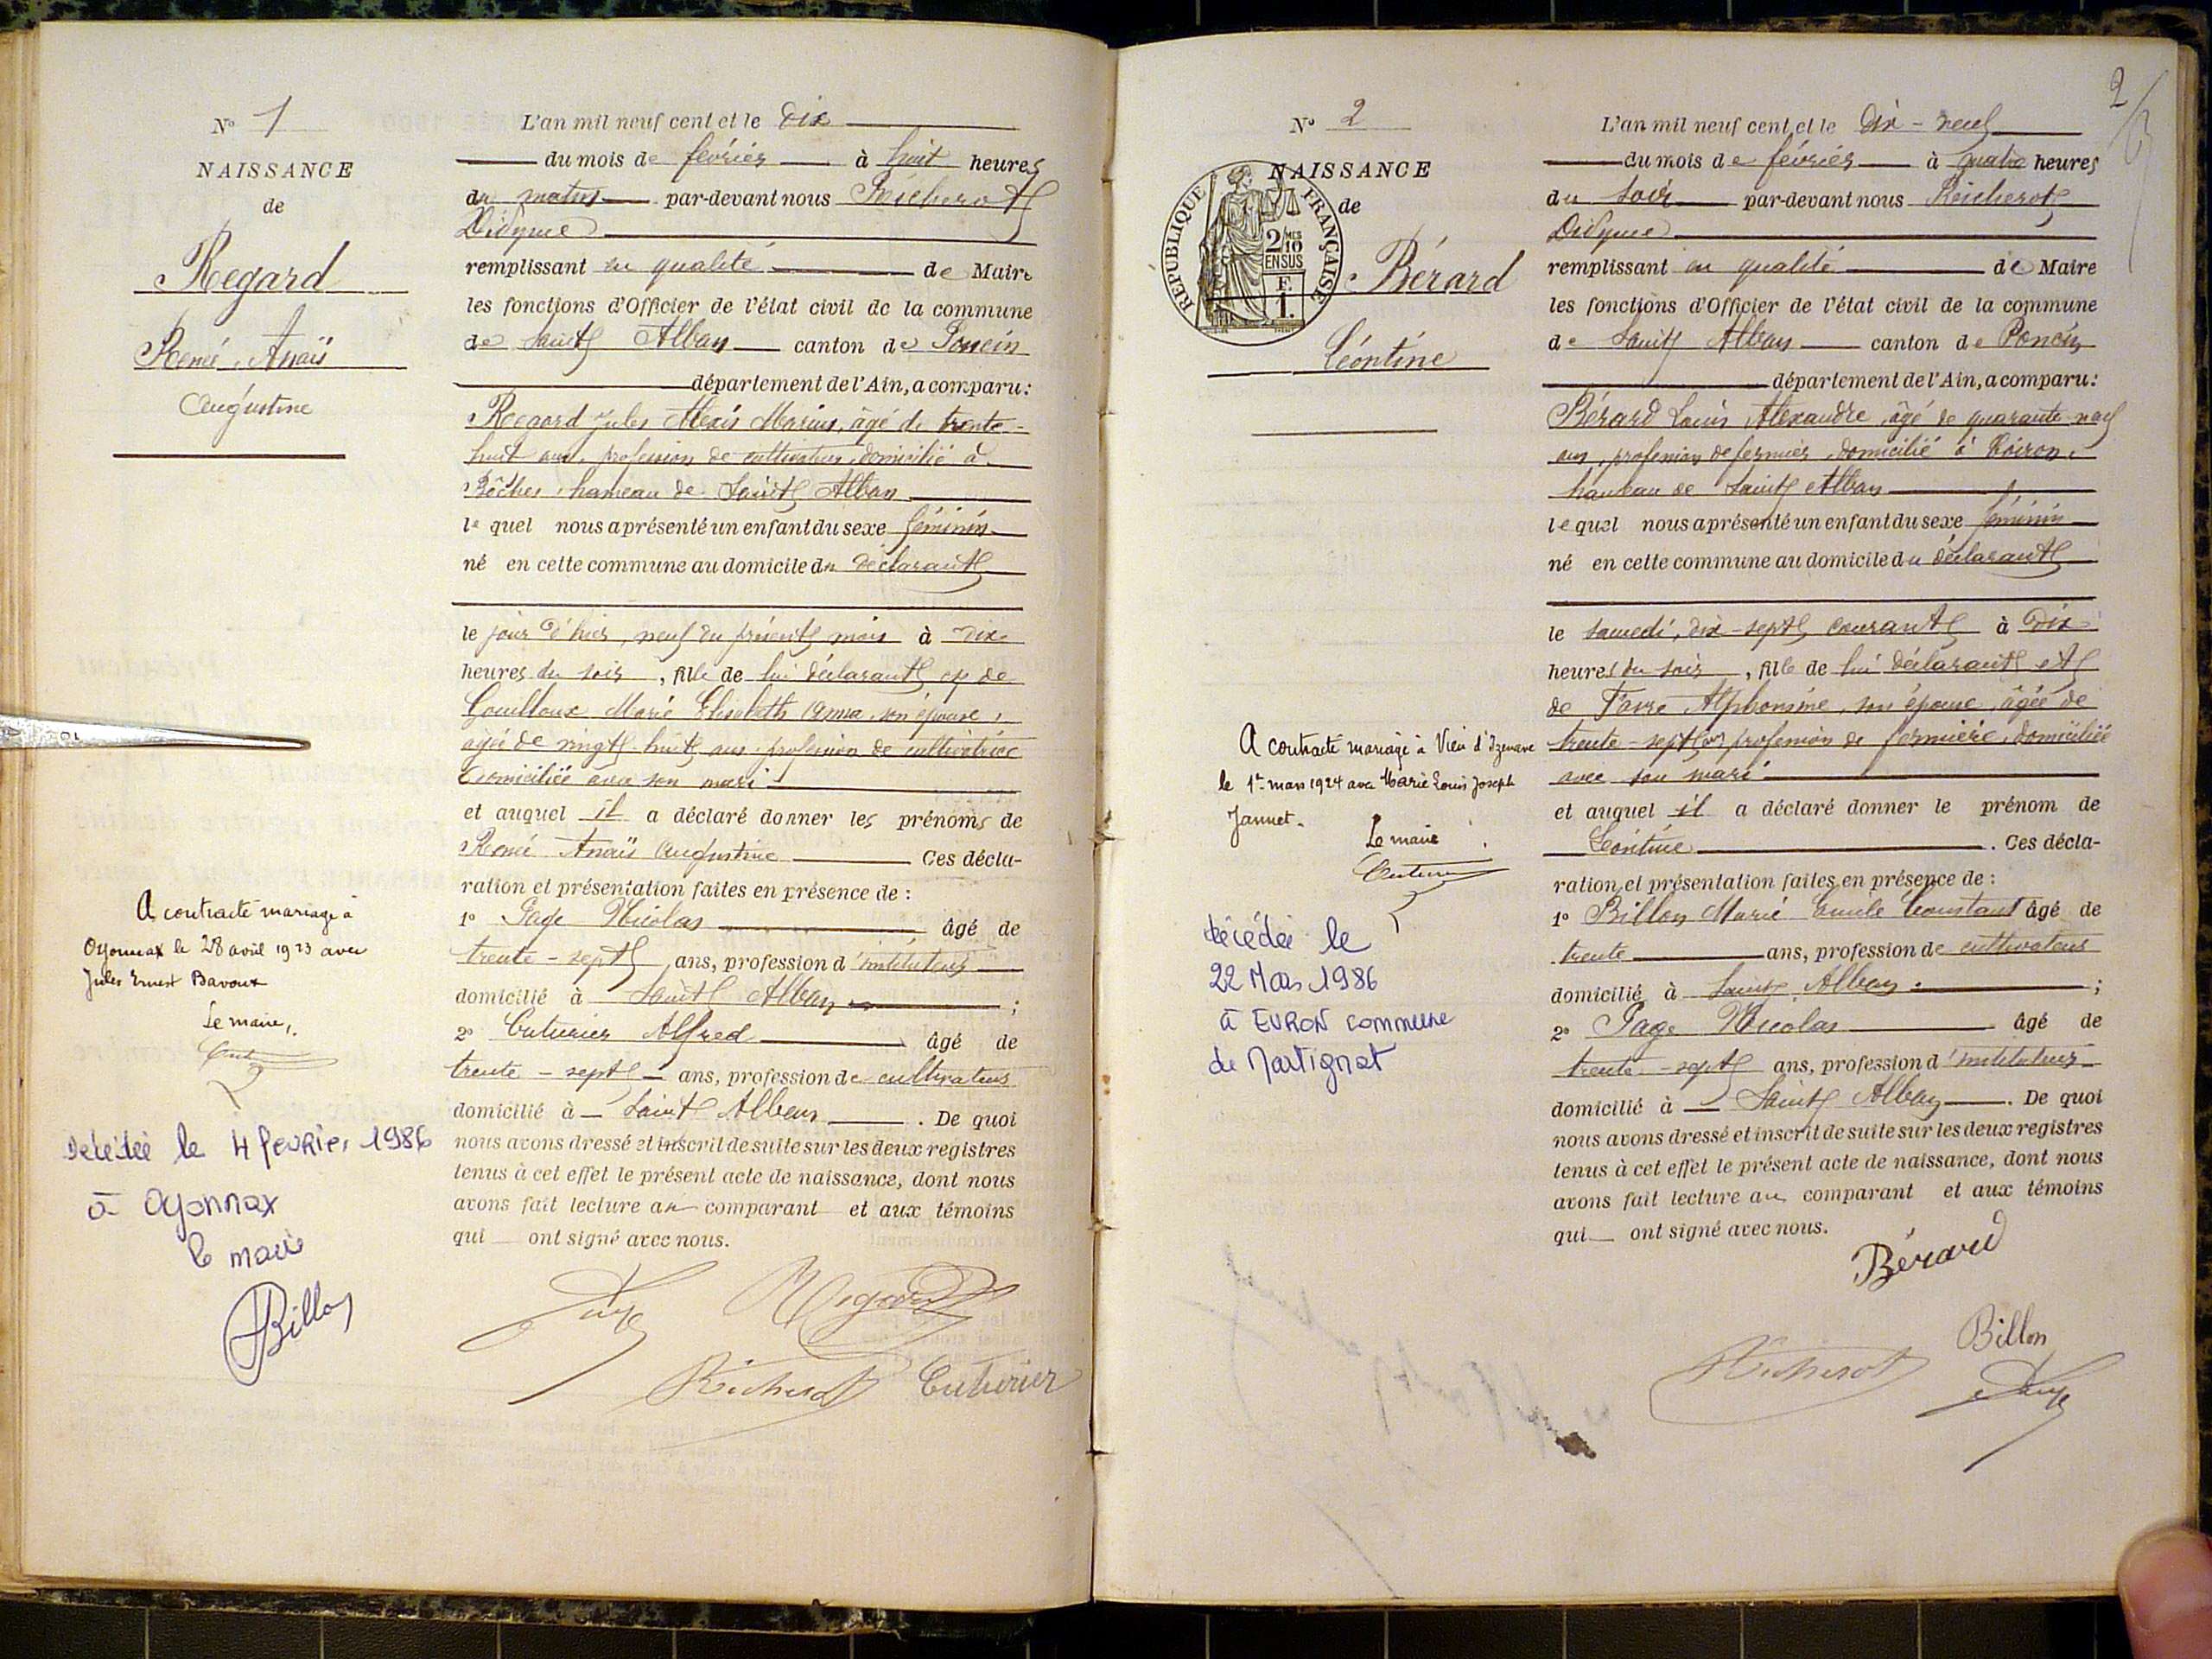 N° 1
NAISSANCE
de
Regard
René Anaïs
Augustine
L'an mil neuf cent et le dix
du mois de février à huit heures
du matin par-devant nous Reicherot
Didyme
remplissant en qualité de Maire
les fonctions d'Officier de l'état civil de la commune
de Saint Alban canton de Poncin
département de l'Ain, a comparu :
Regard Jules Alexis Marius, âgé de trente-
huit ans, profession de cultivateur, domicilié à
Bôches, hameau de Saint Alban
lequel nous a présenté un enfant du sexe féminin
né en cette commune au domicile du déclarant
le jour d'hier, neuf du présent mois à dix
heures du soir, fille de lui déclarant et de
Gouilloux Marie Elisabeth Anna, son épouse,
âgée de vingt-huit ans, profession de cultivatrice
domiciliée avec son mari
et auquel il a déclaré donner les prénoms de
René Anaïs Augustine Ces décla-
ration et présentation faites en présence de :
1° Page Nicolas âgé de
trente-sept ans, profession d'instituteur
domicilié à Saint Alban ;
2° Cuturier Alfred âgé de
trente-sept ans, profession de cultivateur
domicilié à Saint Alban. De quoi
nous avons dressé et inscrit de suite sur les deux registres
tenus à cet effet le présent acte de naissance, dont nous
avons fait lecture au comparant et aux témoins
qui ont signé avec nous.
Page Regard
Reicherot Cuturier
A contracté mariage à
Oyonnax le 28 avril 1923 avec
Jules Ernest Bavoux
Le maire,
Décédée le 4 février 1986
à Oyonnax
le maire
Billon
2
N° 2
NAISSANCE
de
RÉPUBLIQUE FRANÇAISE
2/10 MES
EN SUS
F.
1.
Bérard
Léontine
L'an mil neuf cent et le dix-neuf
du mois de février à quatre heures
du soir par-devant nous Reicherot
Didyme
remplissant en qualité de Maire
les fonctions d'Officier de l'état civil de la commune
de Saint Alban canton de Poncin
département de l'Ain, a comparu :
Bérard Louis Alexandre, âgé de quarante-neuf
ans, profession de fermier, domicilié à Coiron,
hameau de Saint Alban
lequel nous a présenté un enfant du sexe féminin
né en cette commune au domicile du déclarant
le samedi, dix-sept courant à dix
heures du soir, fille de lui déclarant et
de Favre Alphonsine, son épouse, âgée de
trente-sept ans profession de fermière, domiciliée
avec son mari
et auquel il a déclaré donner le prénom de
Léontine. Ces décla-
ration et présentation faites en présence de :
1° Billon Marie Emile Constant âgé de
trente ans, profession de cultivateur
domicilié à Saint Alban ;
2° Page Nicolas âgé de
trente-sept ans, profession d'instituteur
domicilié à Saint Alban. De quoi
nous avons dressé et inscrit de suite sur les deux registres
tenus à cet effet le présent acte de naissance, dont nous
avons fait lecture au comparant et aux témoins
qui ont signé avec nous.
Bérard
Billon
Reicherot Page
A contracté mariage à Vieu d'Izenave
le 1er mars 1924 avec Marie Louis Joseph
Jannet.
Le maire
décédée le
22 Mars 1986
à EVRON commune
de Martignat